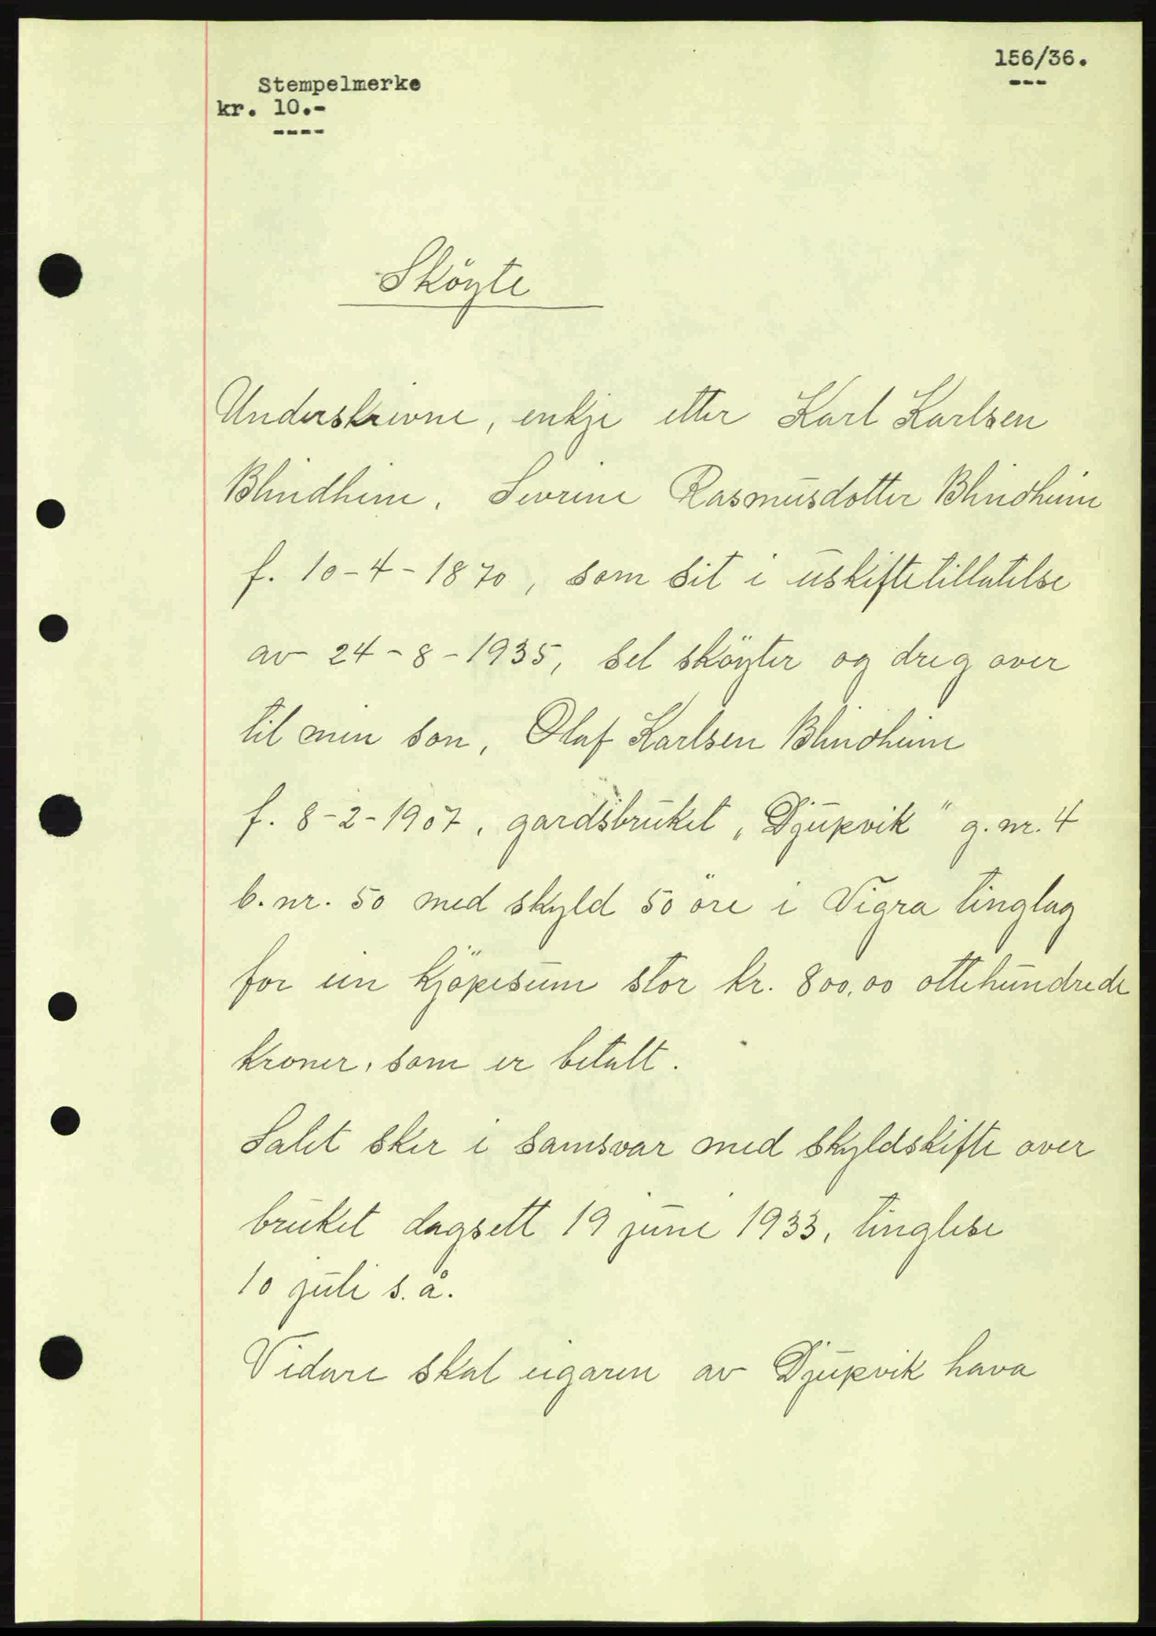 156/36.
Stempelmerke
kr. 10.-
Sköyte
Underskrivne, enkje etter Karl Karlsen
Blindheim, Sevrine Rasmusdotter Blindheim
f. 10-4-1870, som sit i uskiftetillatelse
av 24-8-1935, sel sköyter og dreg over
til min son, Olaf Karlsen Blindheim
f. 8-2-1907, gardsbruket "Djupvik" g.nr. 4
b.nr. 50 med skyld 50 öre i Vigra tinglag
for ein kjöpesum stor kr. 800,00 ottehundrede
kroner, som er betalt.
Salet sker i samsvar med skyldskifte over
bruket dagsett 19 juni 1933, tinglese
10 juli s.å.
Vidare skal eigaren av Djupvik hava